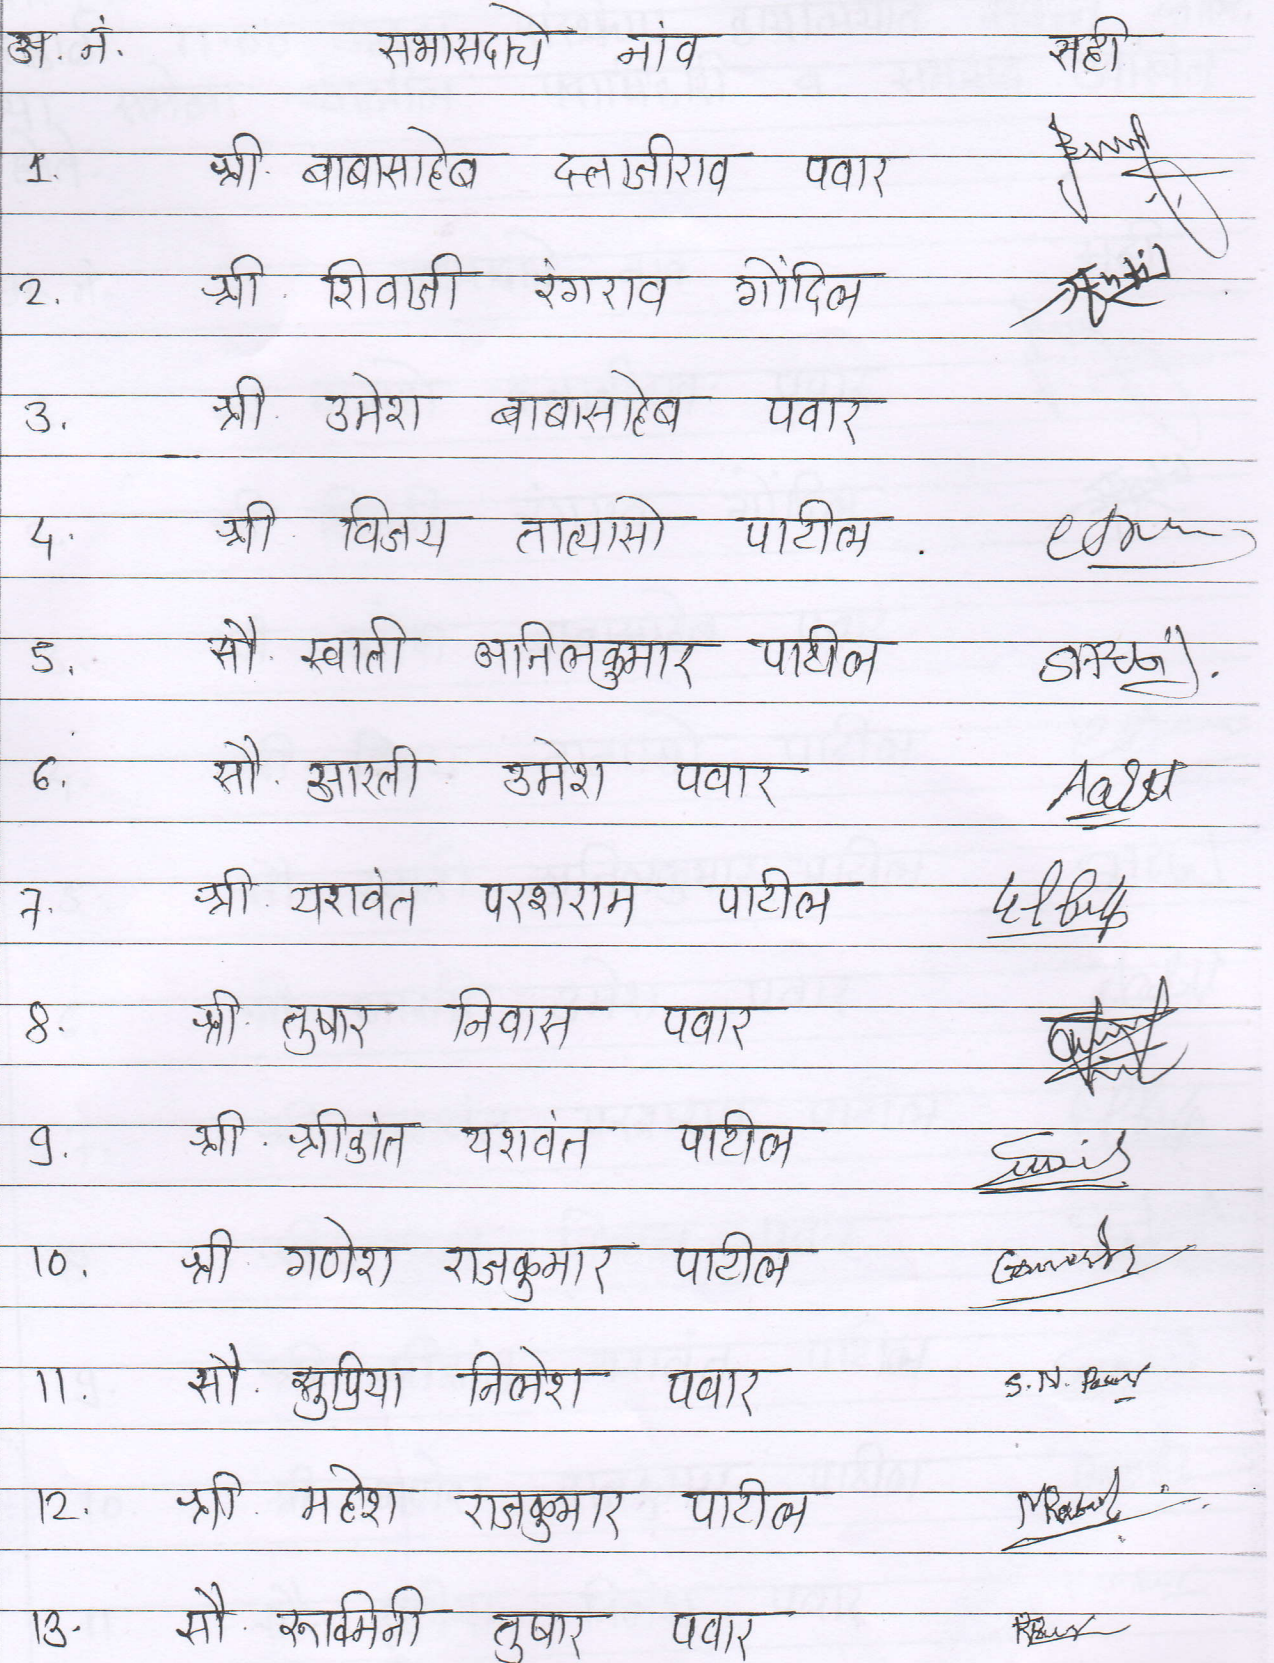 अ. नं. सभासदाचे नांव सही
1. श्री. बाबासाहेब दत्ताजीराव पवार
2. श्री. शिवाजी रंगराव गोंदिल
3. श्री. उमेश बाबासाहेब पवार
4. श्री. विजय तात्यासो पाटील.
5. सौ. स्वाती अनिलकुमार पाटील
6. सौ. आरती उमेश पवार Aarti
7. श्री. यशवंत परशराम पाटील
8. श्री. तुषार निवास पवार
9. श्री. श्रीकांत यशवंत पाटील
10. श्री. गणेश राजकुमार पाटील Ganesh
11. सौ. सुप्रिया निलेश पवार S. N. Pawar
12. श्री. महेश राजकुमार पाटील
13. सौ. रूक्मिनी तुषार पवार